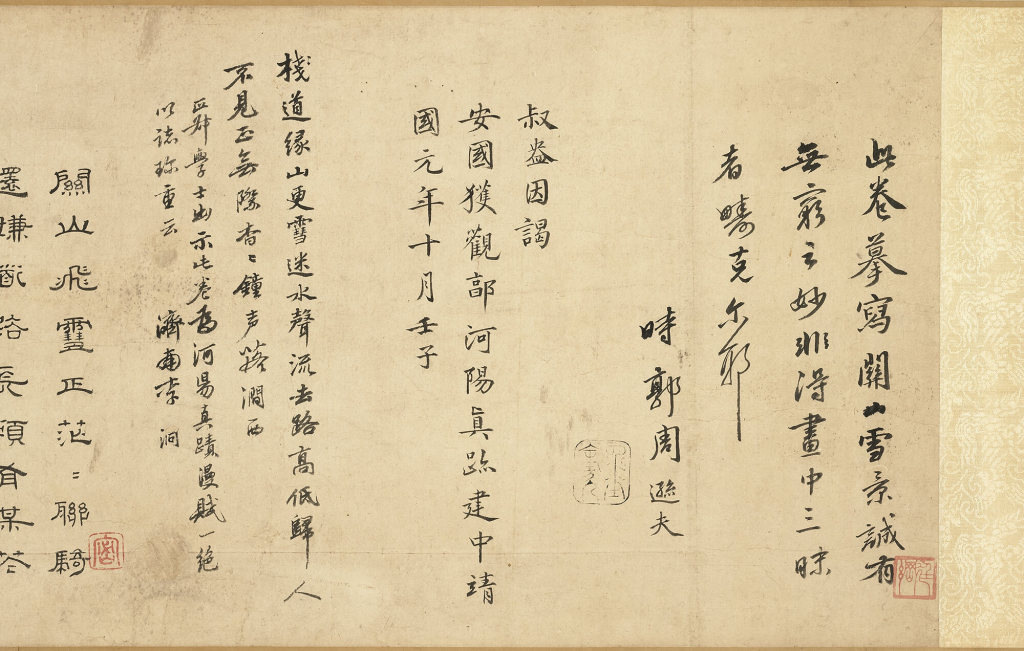 此卷摹寫關山雪景誠有
無窮之妙非得畫中三昧
者疇克尔耶
時郭周遜夫
叔益因謁
安國獲觀郭河陽真跡建中靖
國元年十月壬子
棧道緣山更雪迷水聲流去路高低歸人
不見正無際杳〻鐘声落澗西
學士出示此卷為河陽真蹟漫賦一絕
以誌珍重云
李泂
關山飛璽正茫〻聯騎
還嫌斷路長須有某花